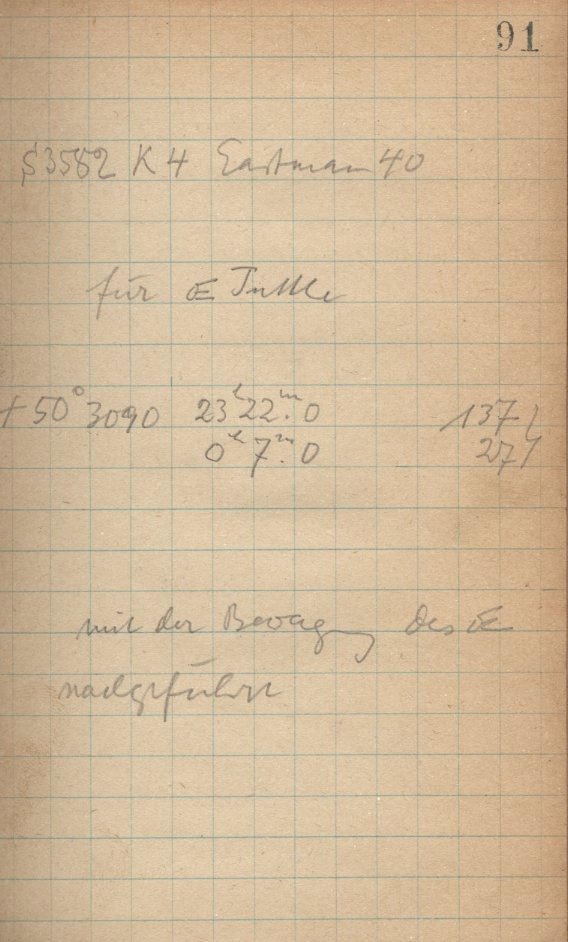 91
S3582 K4 Eastman 40
für Œ Tuttle
+50° 3090 23ʰ22ᵐ.0 137
0ʰ7ᵐ.0 27
mit der Bewegung des Œ
nachgeführt